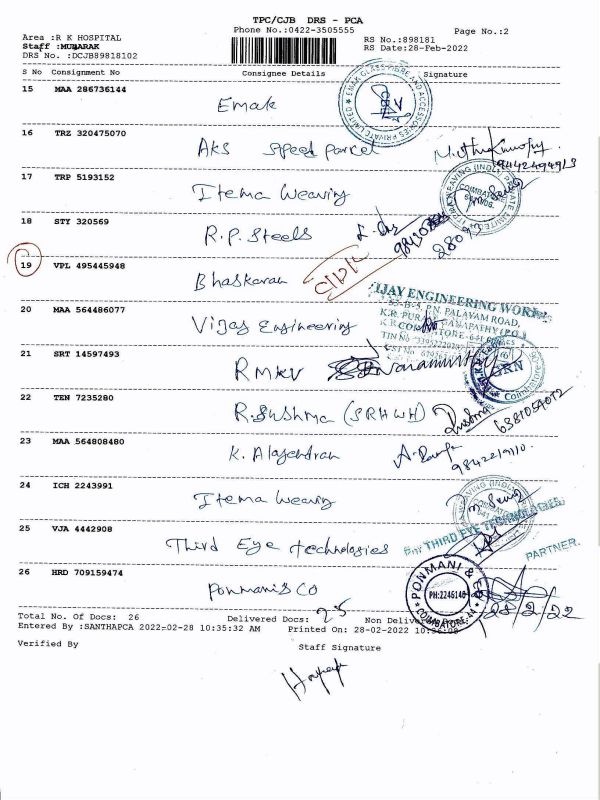 TPC/CJB DRS - PCA
Phone No.:0422-3505555
Page No.:2
Area :R K HOSPITAL
Staff :MUBARAK
DRS No. :DCJB89818102
RS No.:898181
RS Date:28-Feb-2022
S No Consignment No Consignee Details Signature
15 MAA 286736144
Emak
EMAK GLASS FIBRE AND ACCESSORIES PRIVATE LIMITED
16 TRZ 320475070
AKS Speed parcel
17 TRP 5193152
Itema Weaving
COIMBATORE
18 STY 320569
R.P. Steels
19 VPL 495445948
Bhaskaran
20 MAA 564486077
Vijay Engineering
VIJAY ENGINEERING WORKS
21 SRT 14597493
RMKV
22 TEN 7235280
R. Sushma (SRHWH)
6381059072
23 MAA 564808480
K. Alagendran
24 ICH 2243991
Itema Weaving
25 VJA 4442908
Third Eye technologies
For THIRD EYE TECHNOLOGIES
PARTNER.
26 HRD 709159474
Ponmani & Co
PONMANI & CO
PH:2246140
COIMBATORE-44
28/2/22
Total No. Of Docs: 26 Delivered Docs: 25 Non Delivered Docs:
Entered By :SANTHAPCA 2022-02-28 10:35:32 AM Printed On: 28-02-2022 10:36:08
Verified By Staff Signature